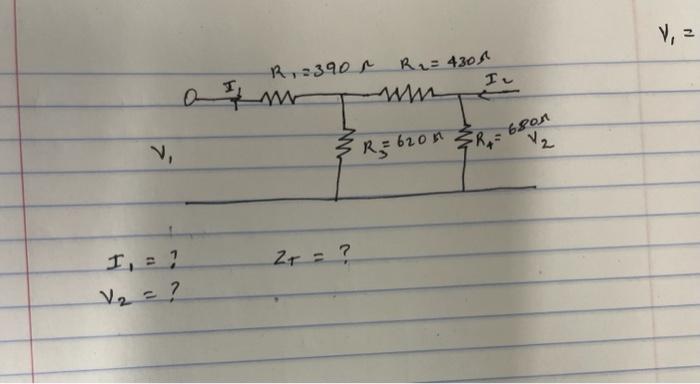 V₁ =
R₁ = 390 Ω R₂ = 430 Ω
I₁ I₂
V₁ R₃ = 620 Ω R₄ = 680Ω V₂
I₁ = ? Z_T = ?
V₂ = ?